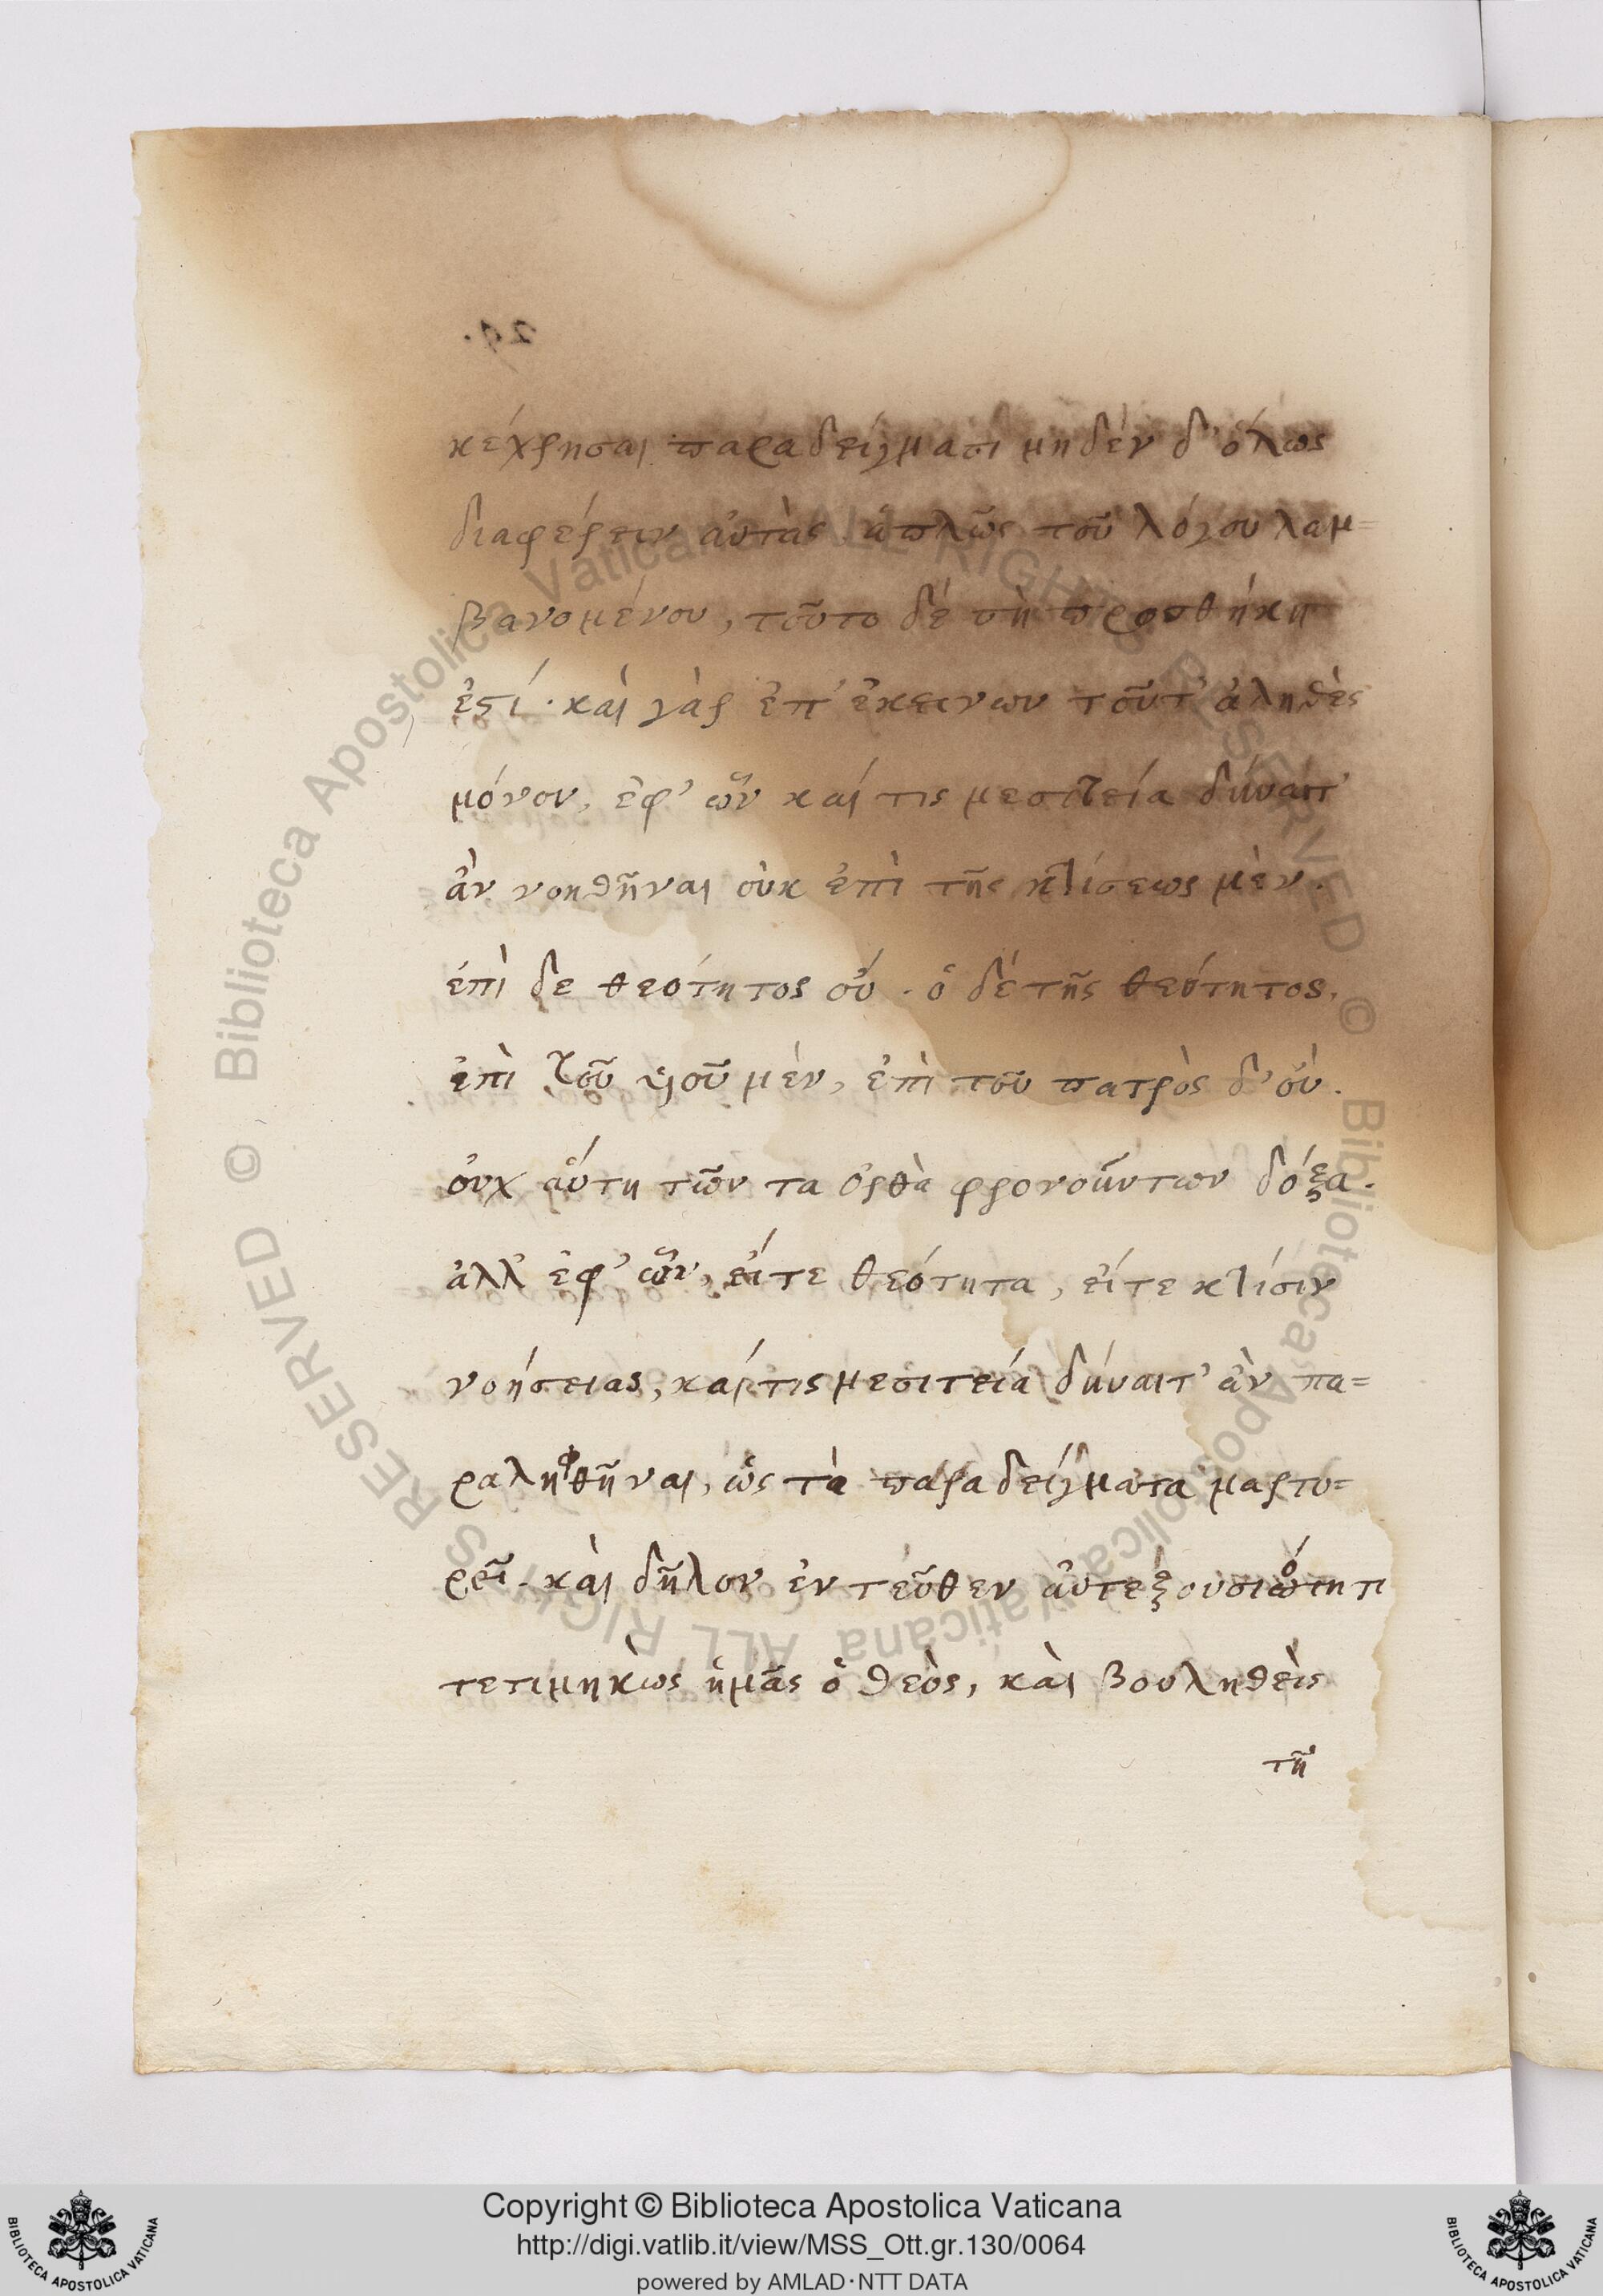 κέχρησαι παραδείγματι μηδὲν δ' ὅλως
διαφέρειν αὐτὰς, ἁπλῶς τοῦ λόγου λαμ=
βανομένου, τοῦτο δέ τῇ προσθήκῃ
ἐστί. καὶ γὰρ ἐπ' ἐκεινων τοῦτ' ἀληθὲς
μόνον, ἐφ' ὧν καί τις μεσιτεία δύναιτ'
ἂν νοηθῆναι οὐκ ἐπὶ τῆς κτίσεως μὲν.
ἐπὶ δε θεότητος οὔ. ὁ δέ τῆς θεότητος,
ἐπὶ τοῦ υἱοῦ μὲν, ἐπὶ τοῦ πατρὸς δ' οὐ.
οὐχ αὕτη τῶν τα ὀρθὰ φρονούντων δόξα.
ἀλλ' ἐφ' ὧν, εἴτε θεότητα, εἴτε κτίσιν
νοήσειας, καί τις μεσιτεία δύναιτ' ἂν πα=
ραληφθῆναι, ὡς τὰ παραδείγματα μαρτυ=
ρεῖ. καὶ δῆλον ἐντεῦθεν αὐτεξουσιότητι
τετιμηκὼς ἡμᾶς ὁ θεὸς, καὶ βουληθεὶς
τῇ
Copyright © Biblioteca Apostolica Vaticana
http://digi.vatlib.it/view/MSS_Ott.gr.130/0064
powered by AMLAD·NTT DATA
BIBLIOTECA APOSTOLICA VATICANA
BIBLIOTECA APOSTOLICA VATICANA
© Biblioteca Apostolica Vaticana ALL RIGHTS RESERVED © Biblioteca Apostolica Vaticana ALL RIGHTS RESERVED